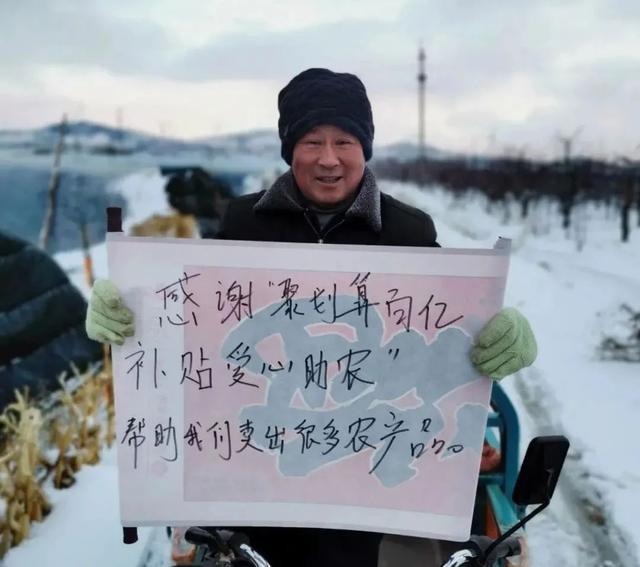 感谢“聚划算百亿
补贴“爱心助农”
帮助我们卖出很多农产品。